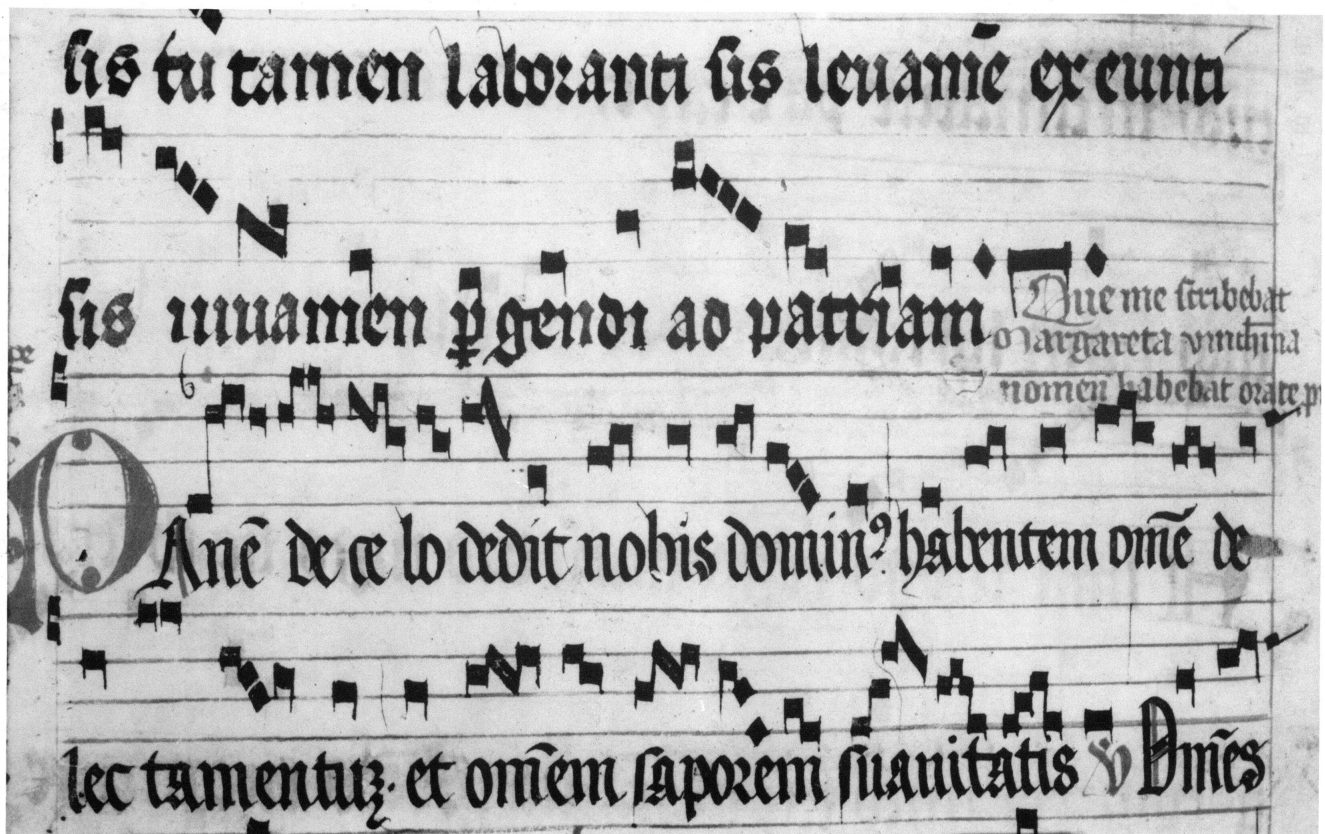 sis tu tamen laboranti sis leuamē exeunti
sis iuuamen ꝑgendi ad patriam
Que me scribebat
Margareta
nomen habebat orate
PAnē de ce lo dedit nobis dominꝰ habentem omē de
lec tamentuꝫ et om̄em saporem suauitatis ℣ Om̄es